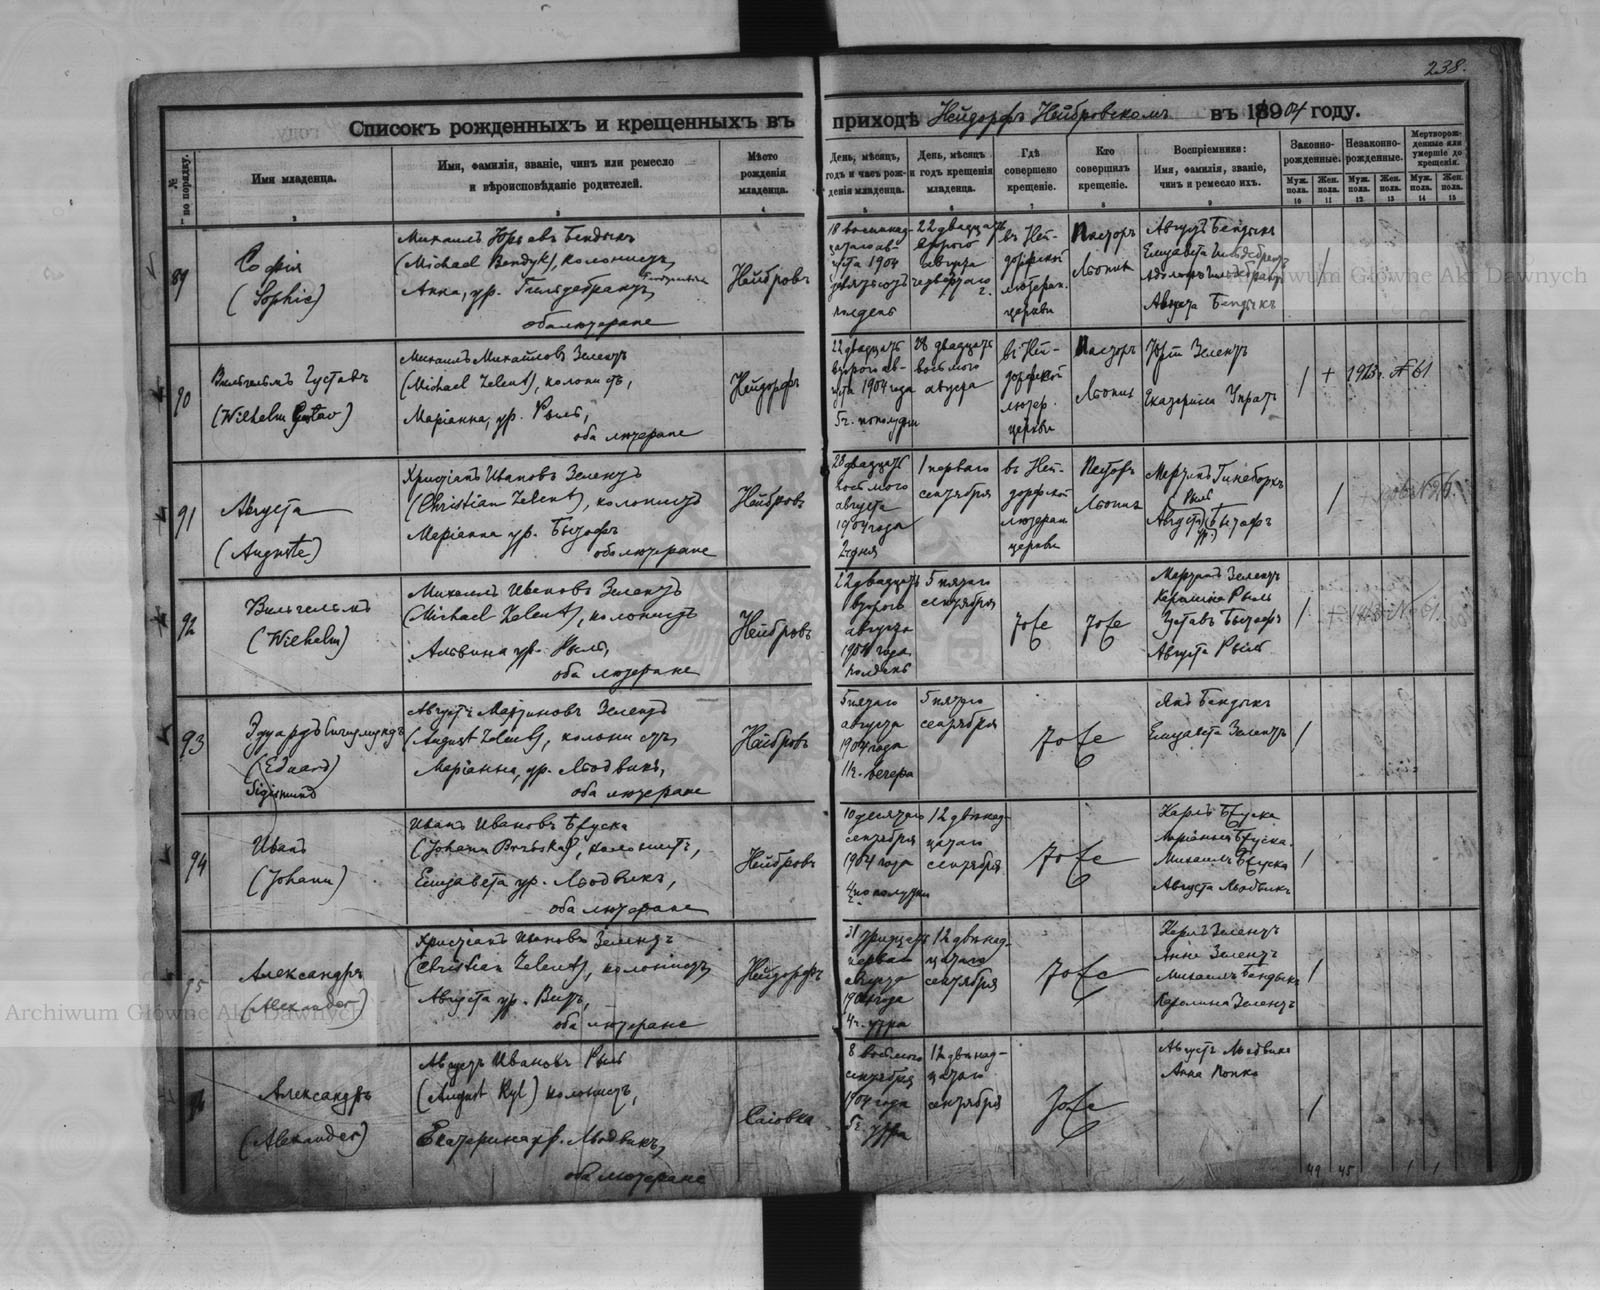 238.
Списокъ рожденныхъ и крещенныхъ въ приходѣ Нейдорфъ Нейбровскомъ въ 1904 году.
№ по порядку.
Имя младенца.
Имя, фамилія, званіе, чинъ или ремесло
и вѣроисповѣданіе родителей.
Мѣсто
рожденія
младенца.
День, мѣсяцъ,
годъ и часъ рож-
денія младенца.
День, мѣсяцъ
и годъ крещенія
младенца.
Гдѣ
совершено
крещеніе.
Кто
совершилъ
крещеніе.
Воспріемники:
Имя, фамилія, званіе,
чинъ и ремесло ихъ.
Законно-
рожденные.
Незаконно-
рожденные.
Мертворож-
денные или
умершіе до
крещенія.
Муж. пола. Жен. пола. Муж. пола. Жен. пола. Муж. пола. Жен. пола.
2 3 4 5 6 7 8 9 10 11 12 13 14 15
89
Софія
(Sophie)
Михаилъ Юрьевъ Бендыкъ
(Michael Bendyk), колонистъ,
Анна, ур. Гильдебрантъ,
оба лютеране
Нейбровъ
18 восемнад-
цатаго ав-
густа 1904
полдень
22 двадцать
второго
августа
въ Ней-
дорфской
лютеран.
церкви
Пасторъ
Августъ Бендыкъ
Елизавета Гильдебрантъ
Августа Бендыкъ
90
Вильгельмъ Густавъ
(Wilhelm Gustav)
Михаилъ Михайловъ Зелентъ
(Michael Zelent), колонистъ,
Маріанна, ур. Рыль,
оба лютеране
Нейдорфъ
22 двадцать
второго ав-
густа 1904 года
5 ч. пополудни
28 двадцать
восьмого
августа
въ Ней-
дорфской
лютер.
церкви
Пасторъ
Зелентъ
Екатерина
+ 1913 г. № 61
91
Августа
(Auguste)
Христіанъ Ивановъ Зелентъ
(Christian Zelent), колонистъ
Маріанна ур. Бытофъ
оба лютеране
Нейбровъ
28 двадцать
восьмого
августа
1904 года
2 ч. дня
1 перваго
сентября
въ Ней-
дорфской
лютеран
церкви
Пасторъ
Рыль
Августа ур. Бытофъ
92
Вильгельмъ
(Wilhelm)
Михаилъ Ивановъ Зелентъ
(Michael Zelent), колонистъ
Альвина ур. Рыль,
оба лютеране
Нейбровъ
22 двадцать
второго
августа
1904 года
полдень
5 пятаго
сентября
тоже
тоже
Мартинъ Зелентъ
Каролина Рыль
Густавъ Бытофъ
Августа Рыль
93
Эдуардъ Сигизмундъ
(Eduard)
Sigismund
Августъ Мартиновъ Зелентъ
(August Zelent), колонистъ,
Маріанна, ур. Людвикъ,
оба лютеране
Нейбровъ
5 пятаго
августа
1904 года
11 ч. вечера
5 пятаго
сентября
тоже
Янъ Бендыкъ
Елизавета Зелентъ
94
Иванъ
(Johann)
Иванъ Ивановъ Бжуска
(Johann Brzuska), колонистъ,
Елизавета ур. Людвикъ,
оба лютеране
Нейбровъ
10 десятаго
сентября
1904 года
4 ч. по полудни
12 двѣнад-
цатаго
сентября
тоже
Карлъ Бжуска
Маріанна Бжуска
Михаилъ Бжуска
Августа Людвикъ
95
Александръ
(Alexander)
Христіанъ Ивановъ Зелентъ
(Christian Zelent), колонистъ,
Августа ур. Витъ,
оба лютеране
Нейдорфъ
31 тридцать
перваго
августа
1904 года
4 ч. утра
12 двѣнад-
цатаго
сентября
тоже
Карлъ Зелентъ
Анна Зелентъ
Михаилъ Бендыкъ
Каролина Зелентъ
96
Александръ
(Alexander)
Августъ Ивановъ Рыль
(August Ryl) колонистъ,
Екатерина ур. Людвикъ,
оба лютеране
Саіовка
8 восьмого
сентября
1904 года
5 ч. утра
12 двѣнад-
цатаго
сентября
тоже
Августъ Людвикъ
Анна Попко
49 45 1 1
Archiwum Główne Akt Dawnych
Archiwum Główne Akt Dawnych